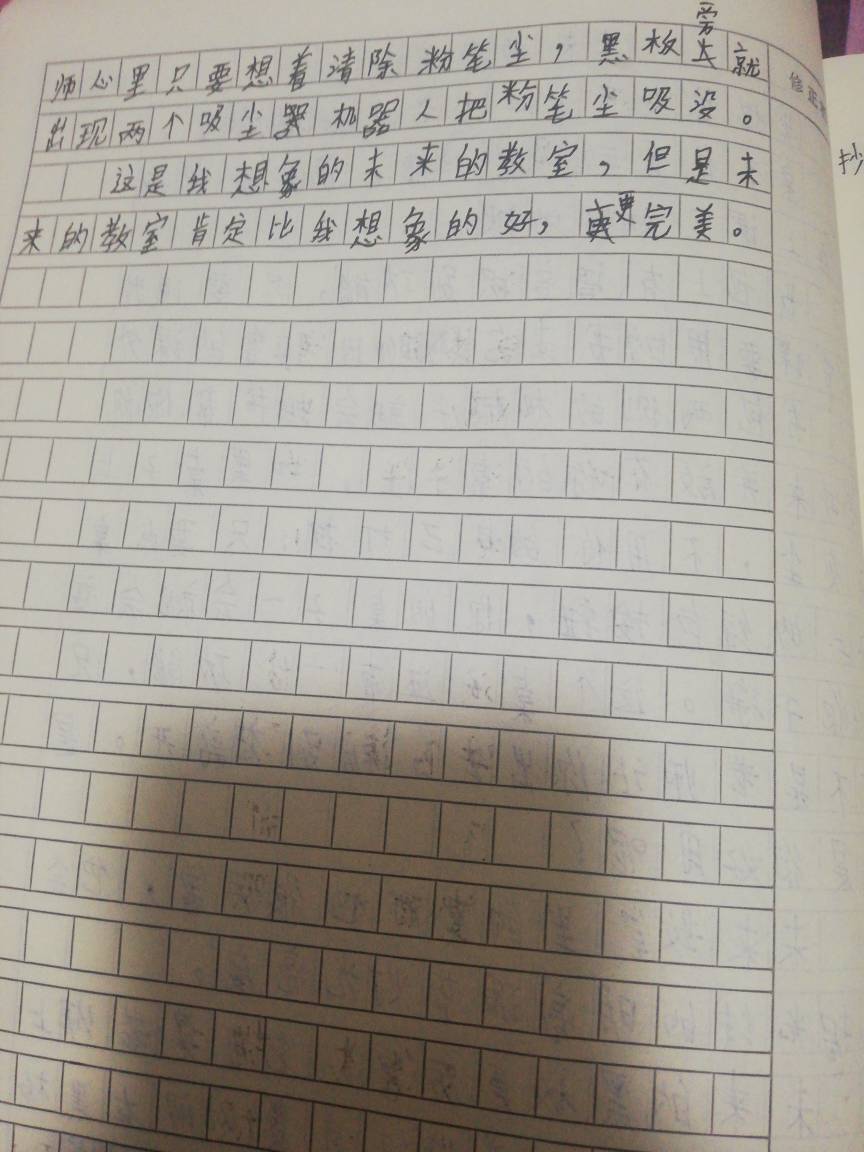 师心里只要想着清除粉笔尘，黑板旁就
出现两个吸尘器机器人把粉笔尘吸没。
这是我想象的未来的教室，但是未
来的教室肯定比我想象的好，更完美。
抄